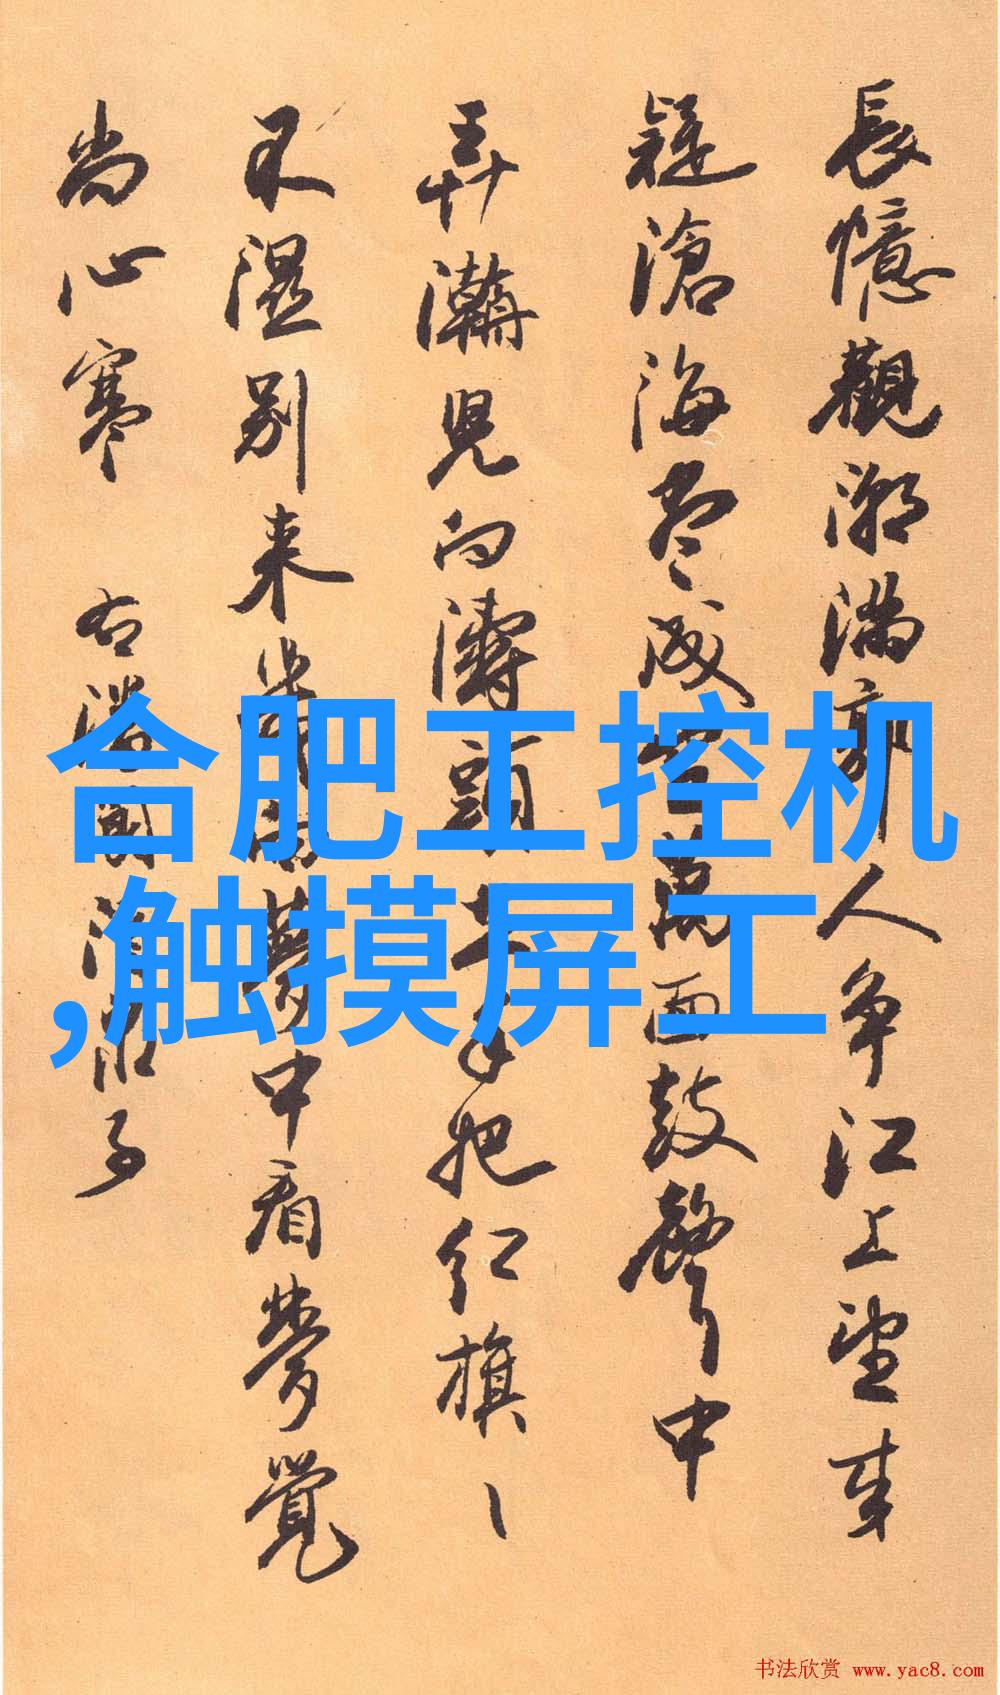 長憶觀潮滿郭人争江上望来
疑滄海尽成空萬面鼓聲中
弄濤兒向濤頭立手把红旗〻
不濕别来幾向夢中看夢覺
尚心寒 右潘閬酒泉子
合肥工控机
,触摸屏工
书法欣赏 www.yac8.com